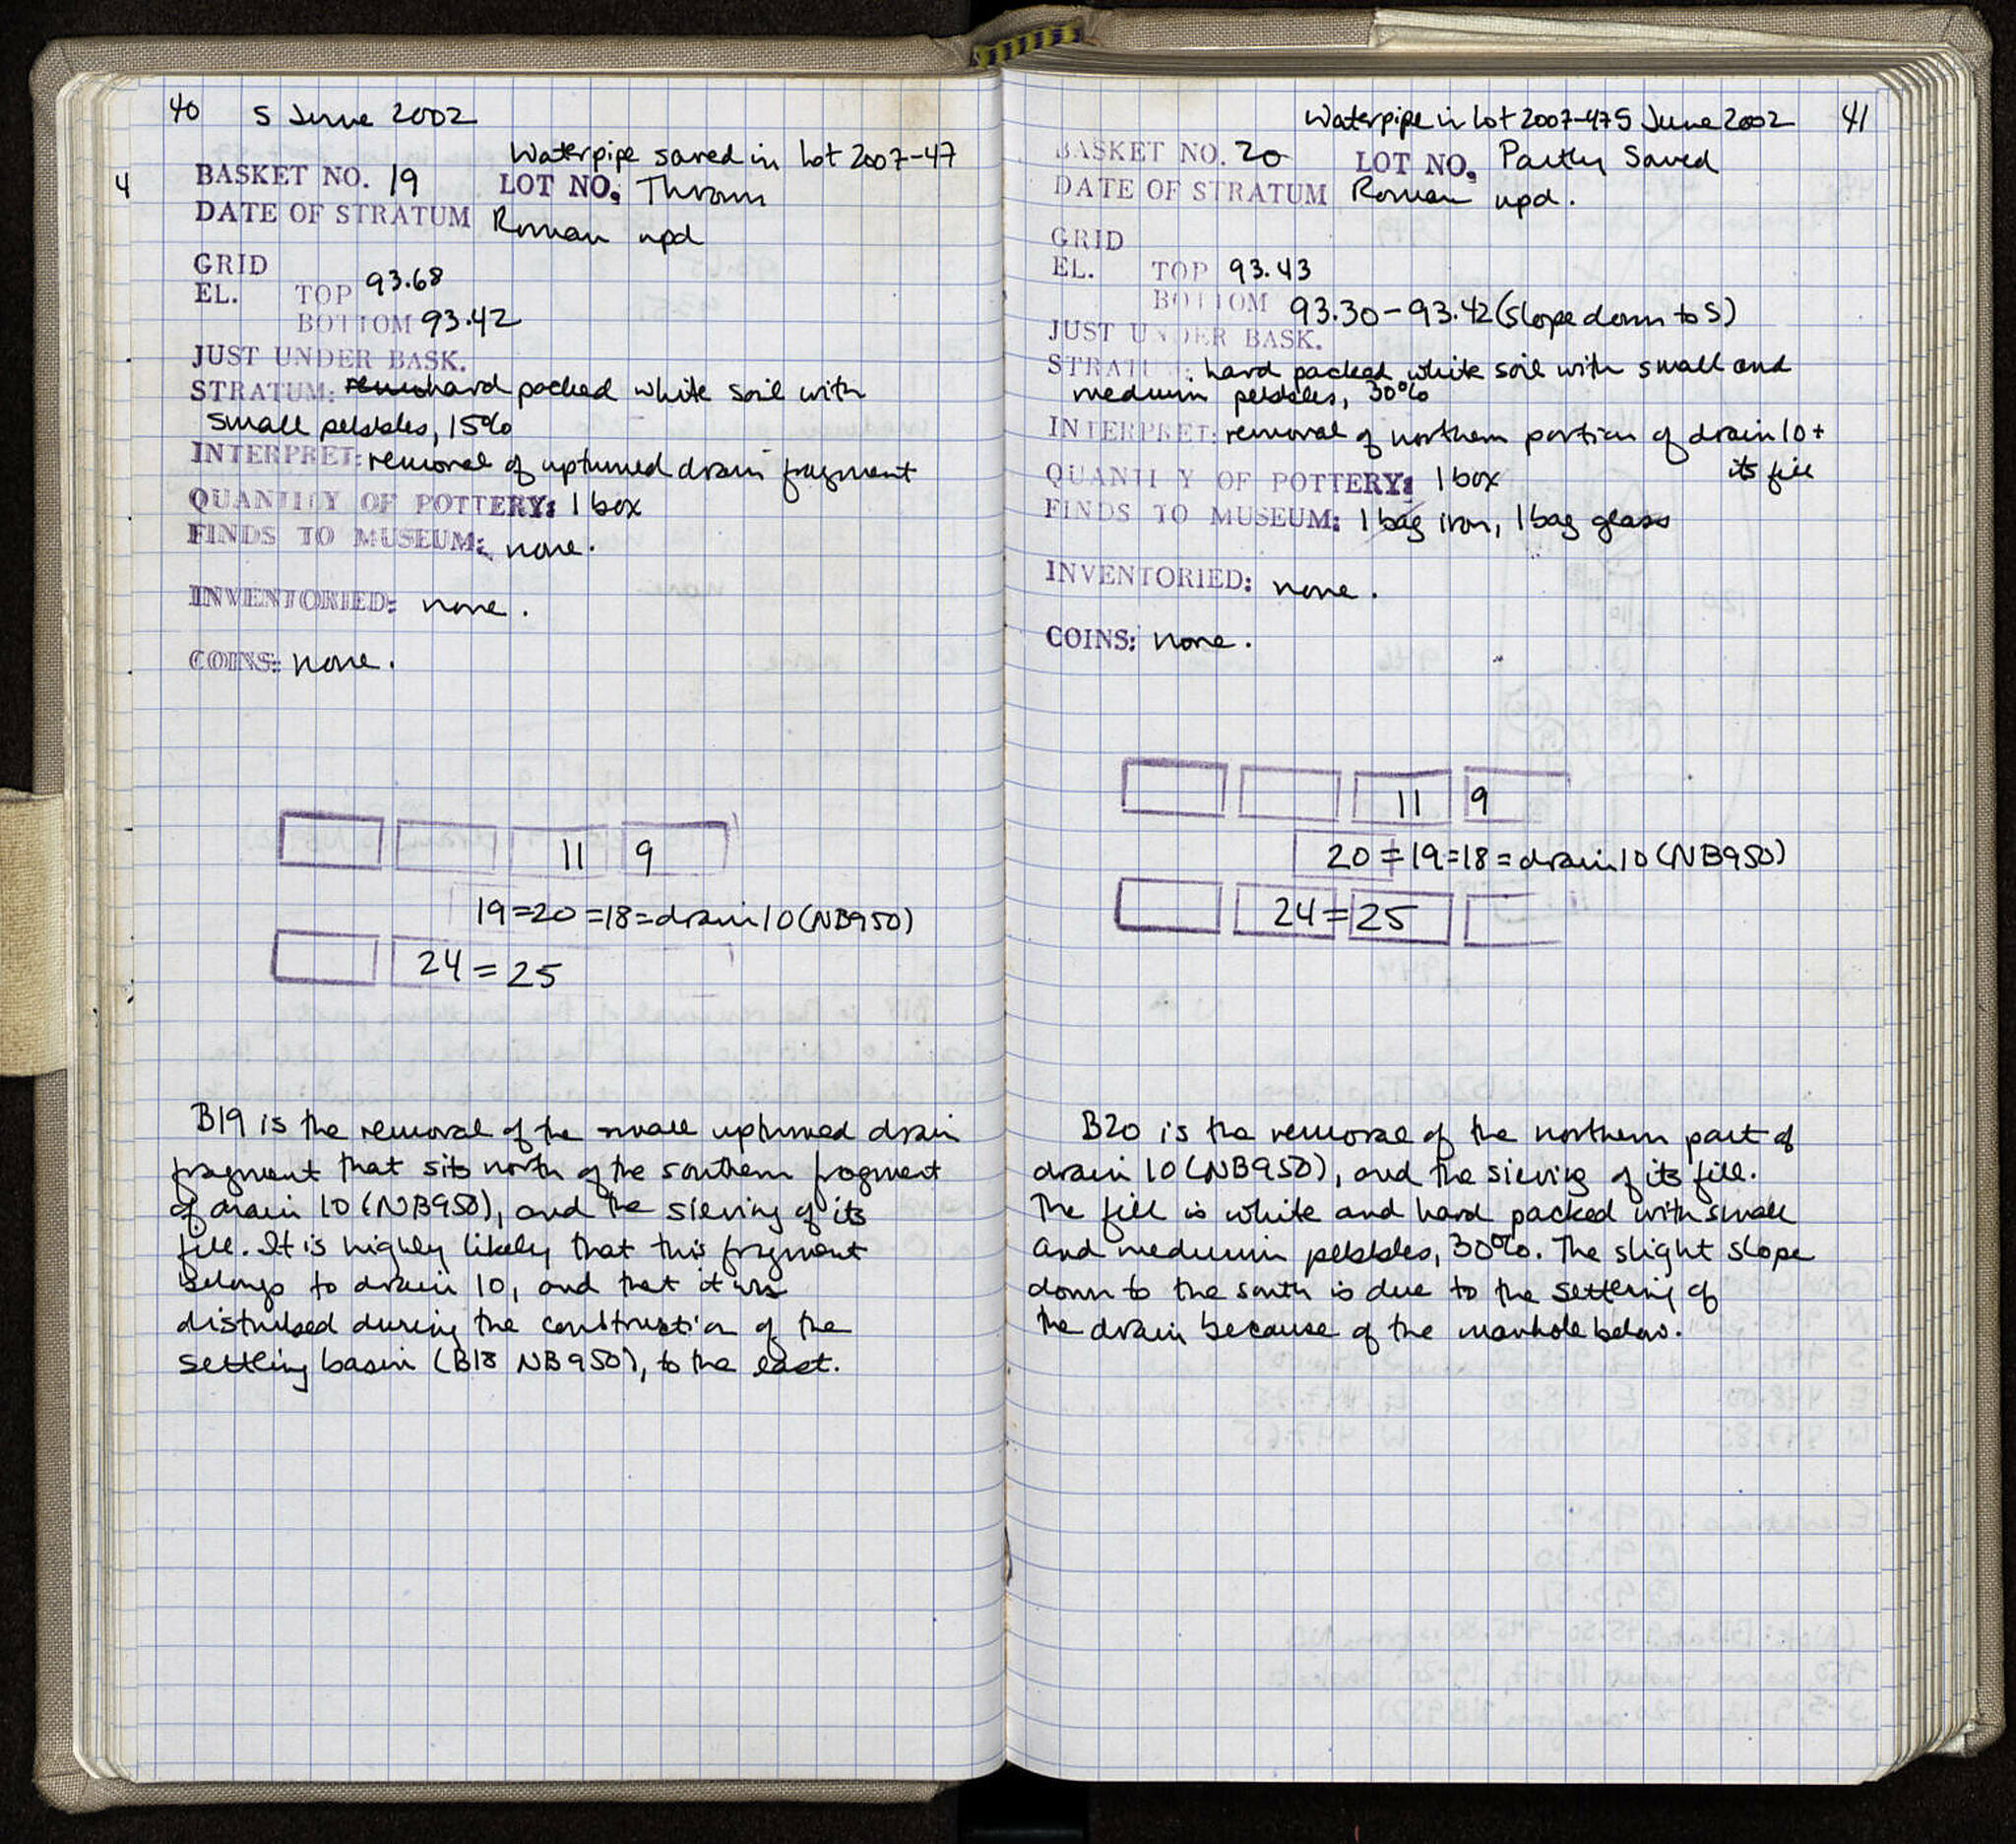 40 5 June 2002
Waterpipe saved in Lot 2007-47
4 BASKET NO. 19 LOT NO. Thrown
DATE OF STRATUM Roman upd
GRID
EL. TOP 93.68
BOTTOM 93.42
JUST UNDER BASK.
STRATUM: hard packed white soil with
small pebbles, 15%
INTERPRET: removal of upturned drain fragment
QUANTITY OF POTTERY: 1 box
FINDS TO MUSEUM: none.
INVENTORIED: none.
COINS: none.
11 9
19=20=18=drain 10 (NB950)
24=25
B19 is the removal of the small upturned drain
fragment that sits north of the southern fragment
of drain 10 (NB950), and the sieving of its
fill. It is highly likely that this fragment
belongs to drain 10, and that it was
disturbed during the construction of the
settling basin (B18 NB950), to the east.
Waterpipe in Lot 2007-47 5 June 2002 41
BASKET NO. 20 LOT NO. Partly Saved
DATE OF STRATUM Roman upd.
GRID
EL. TOP 93.43
BOTTOM 93.30-93.42 (slope down to S)
JUST UNDER BASK.
STRATUM: hard packed white soil with small and
medium pebbles, 30%
INTERPRET: removal of northern portion of drain 10 +
its fill
QUANTITY OF POTTERY: 1 box
FINDS TO MUSEUM: 1 bag iron, 1 bag glass
INVENTORIED: none.
COINS: none.
11 9
20=19=18=drain 10 (NB950)
24=25
B20 is the removal of the northern part of
drain 10 (NB950), and the sieving of its fill.
The fill is white and hard packed with small
and medium pebbles, 30%. The slight slope
down to the south is due to the settering of
the drain because of the manhole below.